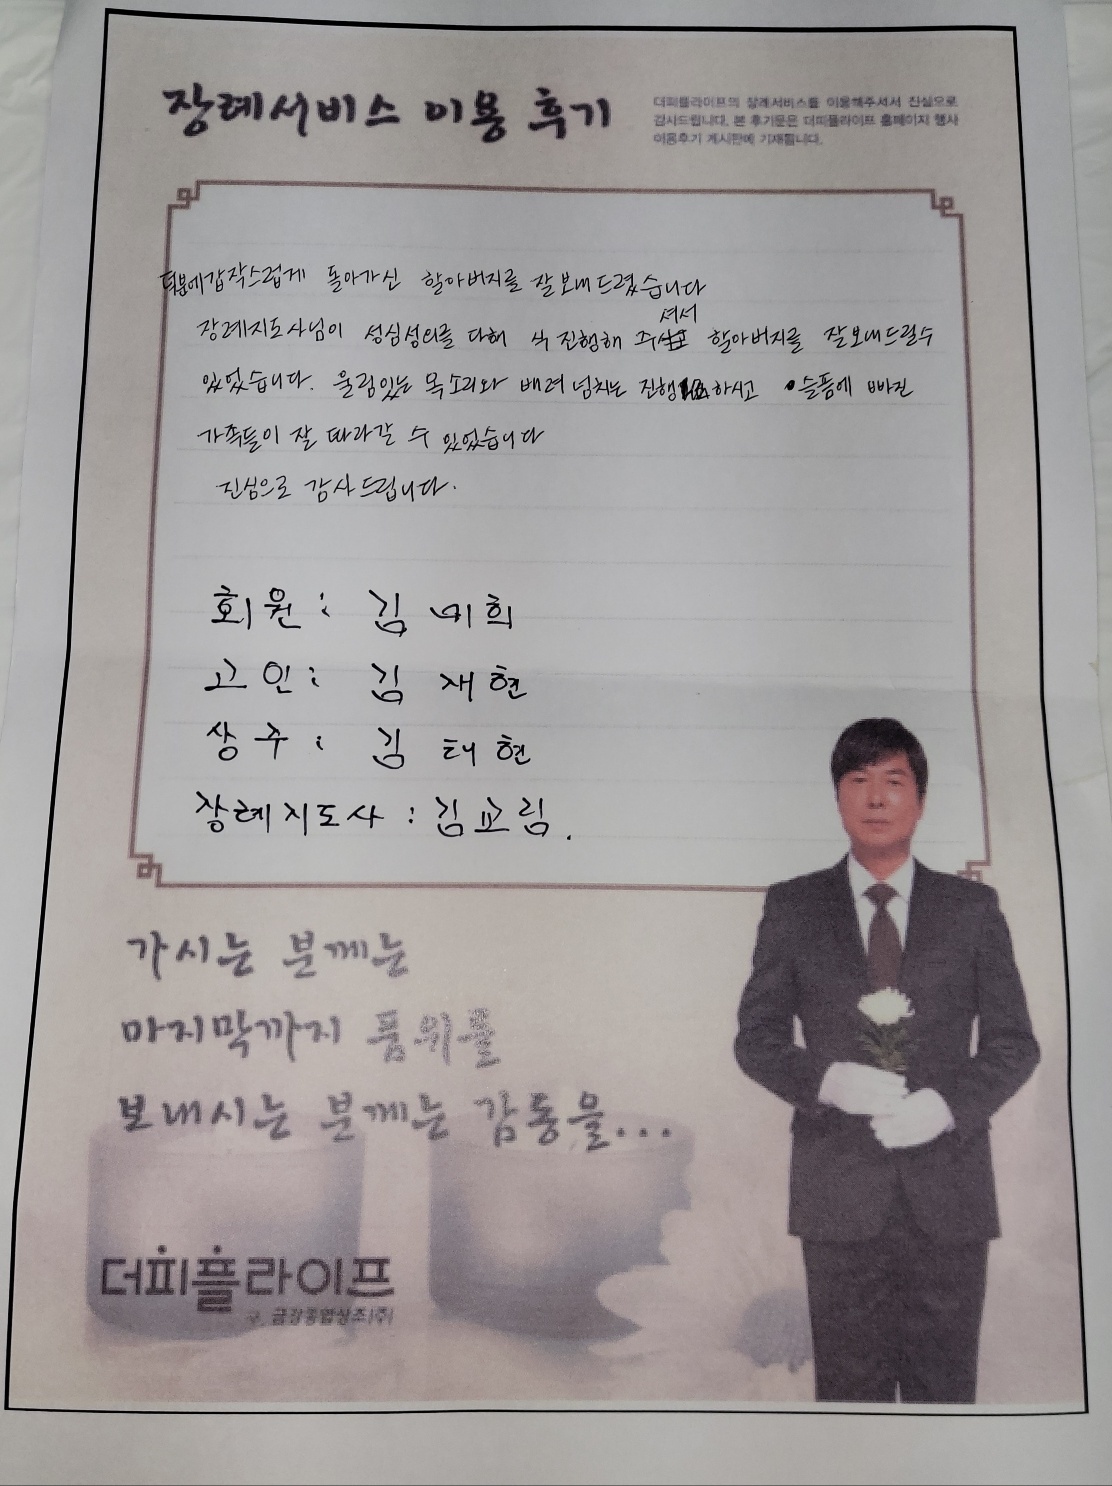 장례서비스 이용 후기
더피플라이프의 장례서비스를 이용해주셔서 진심으로
감사드립니다. 본 후기문은 더피플라이프 홈페이지 행사
이용후기 게시판에 기재됩니다.
덕분에갑작스럽게 돌아가신 할아버지를 잘보내드렸습니다
장례지도사님이 성심성의를 다해 식 진행해 주셔서 할아버지를 잘보내드릴수
있었습니다. 울림있는 목소리와 배려넘치는 진행하시고 슬픔에 빠진
가족들이 잘 따라갈 수 있었습니다
진심으로 감사드립니다.
회원: 김미희
고인: 김재현
상주: 김태현
장례지도사: 김교림.
가시는 분께는
마지막까지 품위를
보내시는 분께는 감동을...
더피플라이프
구. 금강종합상조(주)